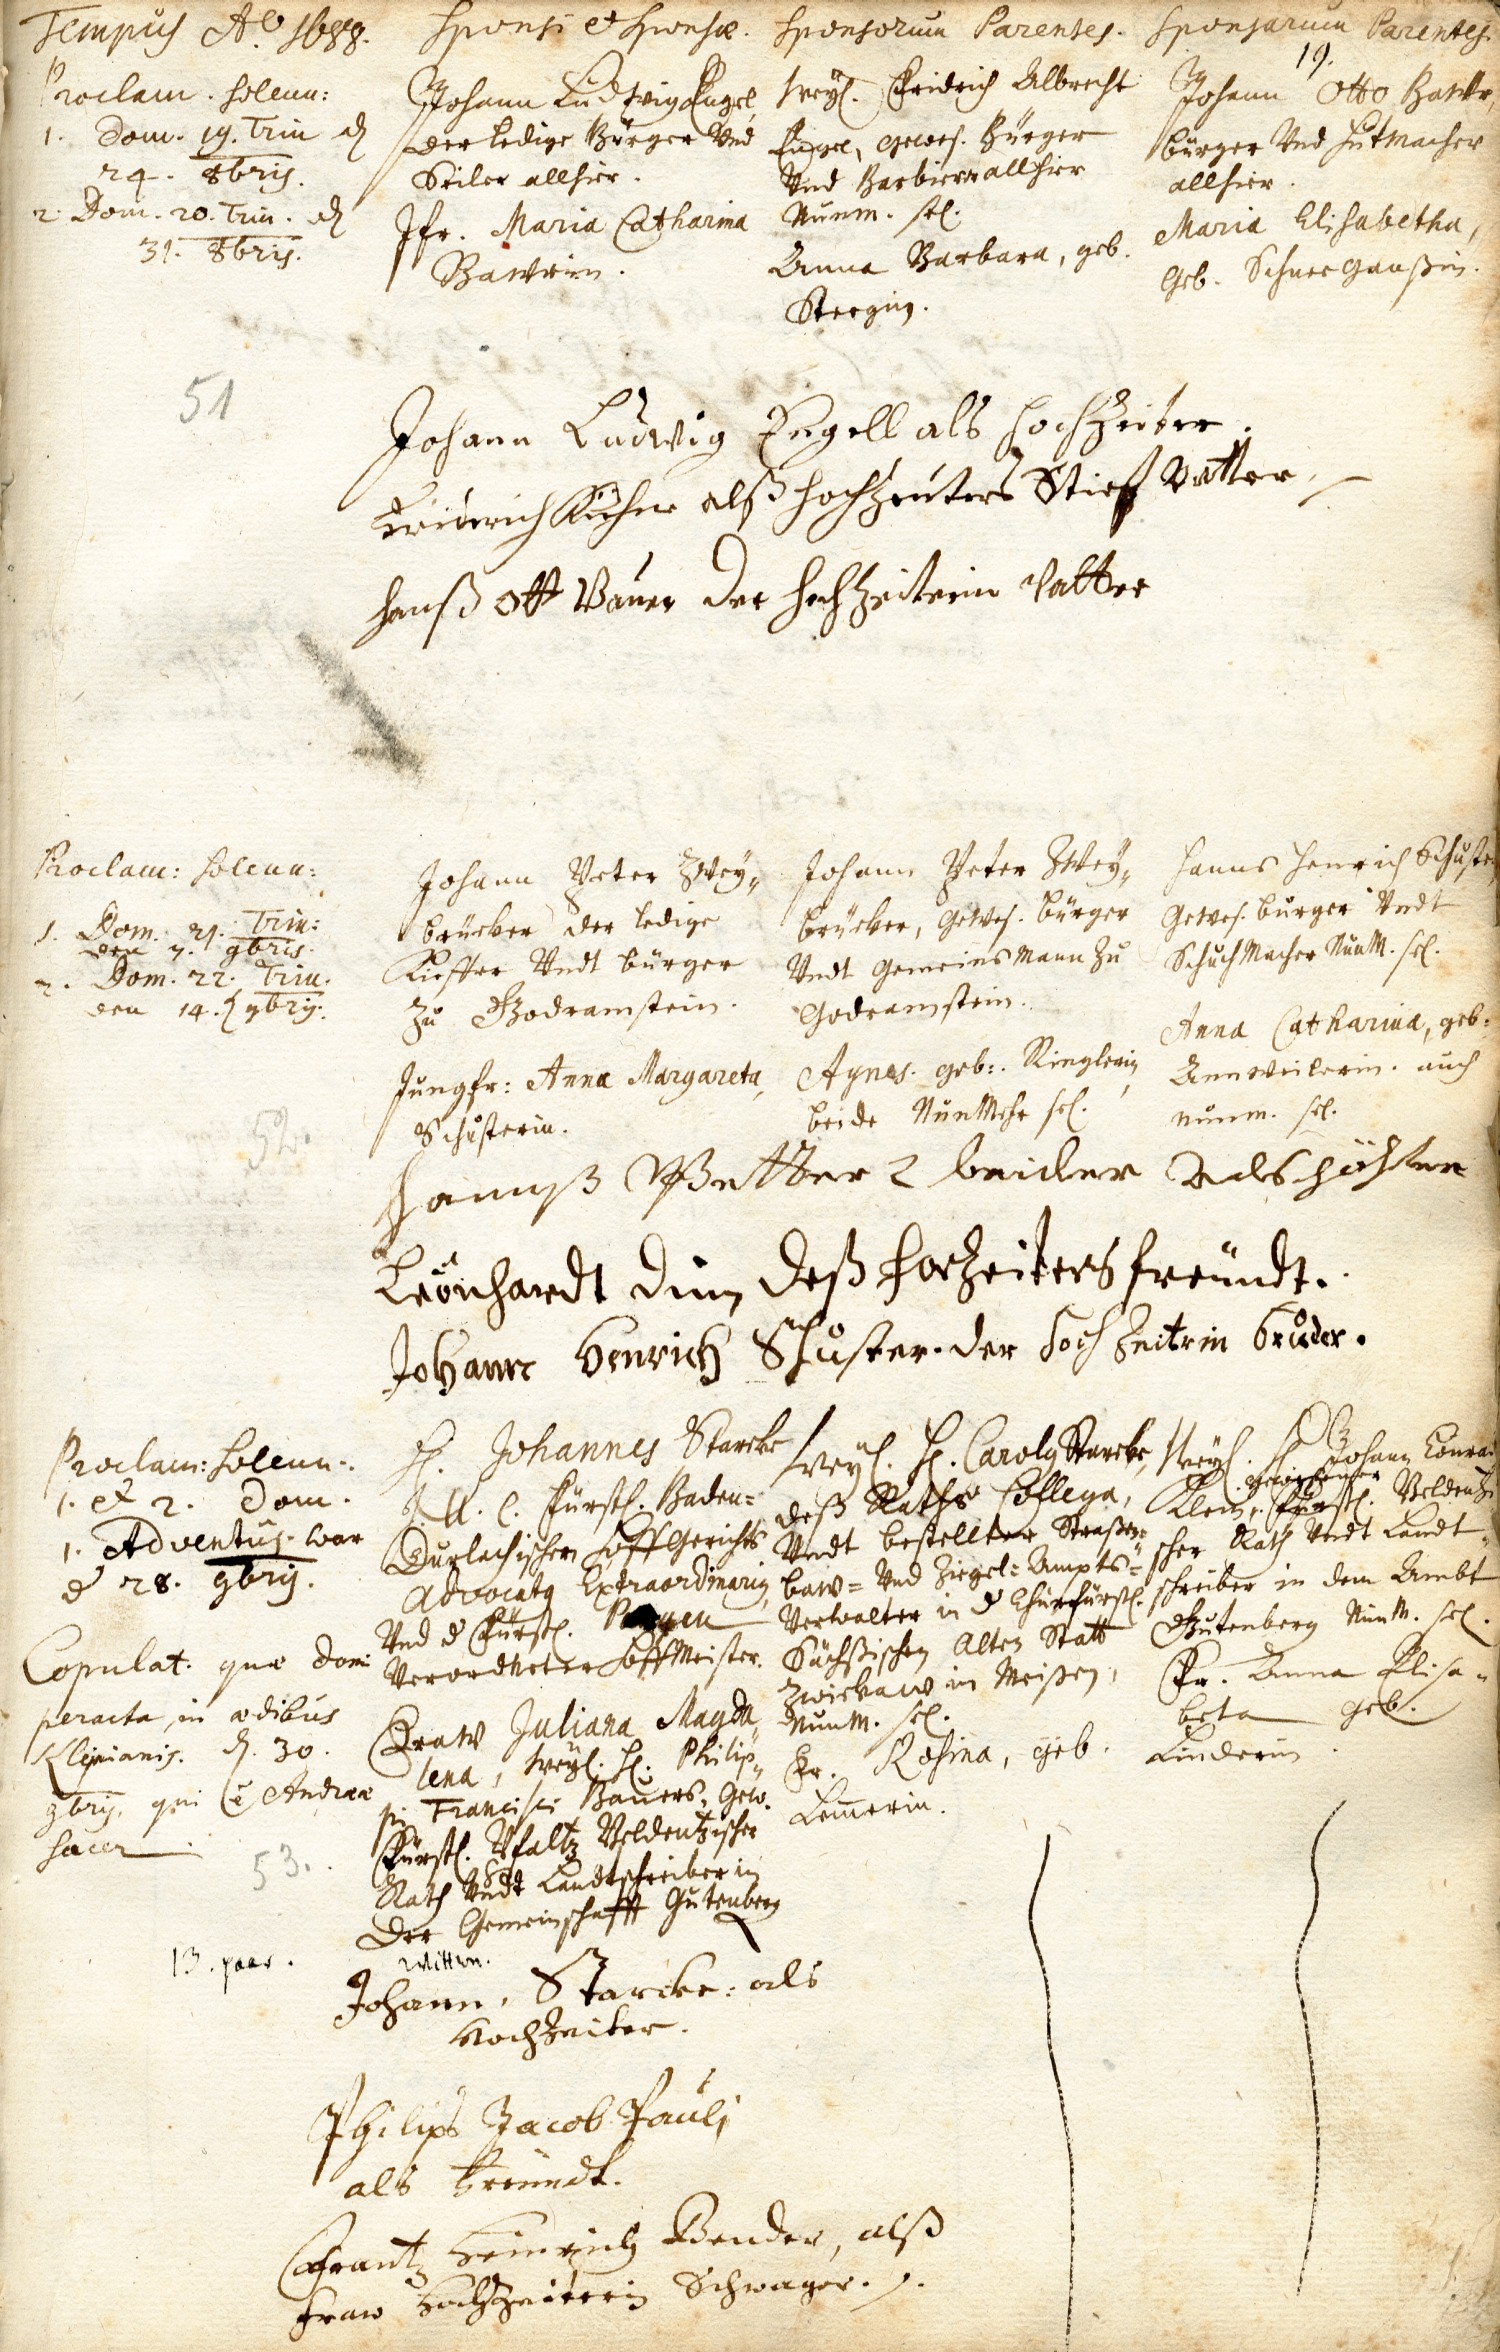 Tempus Ao. 1688.
Sponsi et Sponsæ.
Sponsorum Parentes.
Sponsarum Parentes.
19.
Proclam. solenn:
1. Dom. 19. Trin d
24. 8bris.
2. Dom. 20. Trin. d
31. 8bris.
Johann Ludwig Engel,
der ledige Bürger Vnd
Seiler allhier.
Jfr. Maria Catharina
Bawrin.
Weyl. Fridrich Albrecht
Engel, gewes. Bürger
Vnd Barbierer allhier
Nunm. sel.
Anna Barbara, geb.
Johann Otto Bawr,
bürger Vnd Hutmacher
allhier.
Maria Elisabetha,
geb. Schneeganßin.
51
Johann Ludwig Engell als hochzeiter.
Friderich alß hochzeiters Stieff Vatter.
Hanß Ott Bauer der hochzeiterin Vatter
Proclam: solenn:
1. Dom. 21. Trin:
den 7. 9bris.
2. Dom. 22. Trin.
den 14. 9bris.
Johann Peter Zwey„
brücker der ledige
Kieffer Vndt bürger
zu Godramstein.
Jungfr: Anna Margareta,
Schusterin.
Johann Peter Zwey„
brücker, gewes. bürger
Vndt Gemeinsmann zu
Godramstein.
Agnes. geb:. Ringlerin,
beide NunMehr sel.
Hanns Henrich Schuster
gewes. burger Vndt
SchuchMacher NunM. sel.
Anna Catharina, geb:
Annweilerin. auch
nunm. sel.
52.
Hannß Petter 2 brücker als
Leonhardt deß hochzeiters freündt.
Johann Henrich Schuster. der Hoch Zeitrin bruder.
Proclam: solenn:.
1. et 2. Dom.
1. Adventus. war
d 28. 9bris.
Copulat. quæ domi
peracta, in ædibus
Kleinianis. d. 30.
9bris. qui ē Andreæ
sacer
53.
13. paar.
H. Johannes Starcke
J.U. C. Fürstl. Baden=
Durlachischer HoffGerichts
Advocatus Extraordinarius,
Vnd d Fürstl. Pagen
Verordneter HoffMeister.
Fraw Juliana Magda„
lena, weyl. H. Philip„
pi Francisci Bauers, gew.
Fürstl. Pfaltz Veldentzischer
Rath Vndt Landtschreiber in
der Gemeinschafft Gutenberg
Wittwe.
Weyl. H. Carolus Starcke,
deß Raths Collega,
Vndt bestellter Straßen=
baw= Vnd Ziegel=Ampts=
Verwalter in d Churfürstl.
Sächsischen Alten Statt
Zwickaw in Meißen,
NunM. sel.
Fr. Rosina, geb.
Weyl. H. Johann Conrad
Klein, gewesener Fürstl. Veldentzi
scher Rath Vndt Landt=
schreiber in dem Ambt
Gutenberg NunM. sel.
Fr. Anna Elisa=
beta geb.
Linderin.
Johann, Starcke: als
Hochzeiter.
Philips Jacob Pauli
als freundt.
Frantz Heinrich Bender, alß
fraw Hochzeiterin Schwager.